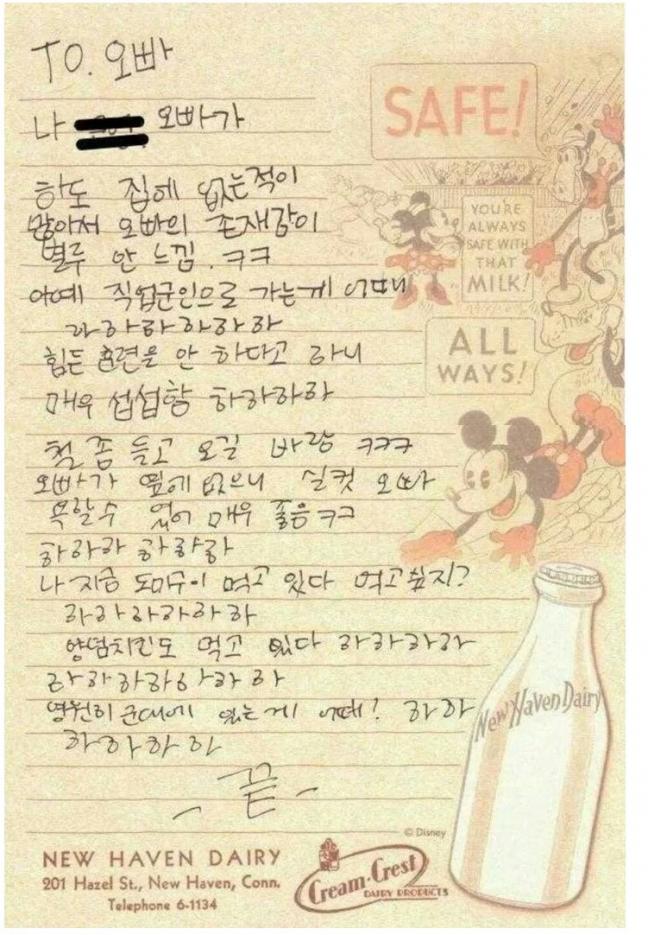 TO. 오빠
나 오빠가
하도 집에 없는적이
많아서 오빠의 존재감이
별루 안 느낌. ㅋㅋ
아예 직업군인으로 가는게 어때
하하하하하하
힘든 훈련을 안 하다고 하니
매우 섭섭함 하하하하
철 좀 들고 오길 바랑 ㅋㅋㅋ
오빠가 옆에 없으니 실컷 오빠
욕할수 있어 매우 좋음 ㅋㅋ
하하하 하햐하
나 지금 도미누이 먹고 있다 먹고싶지?
하하하하하하
양념치킨도 먹고 있다 하하하하
하하하하하하하
영원히 군대에 있는 게 어때! 하하
하하하하
- 끝 -
SAFE!
YOU'RE
ALWAYS
SAFE WITH
THAT
MILK!
ALL
WAYS!
New Haven Dairy
© Disney
NEW HAVEN DAIRY
201 Hazel St., New Haven, Conn.
Telephone 6-1134
Cream-Crest
DAIRY PRODUCTS